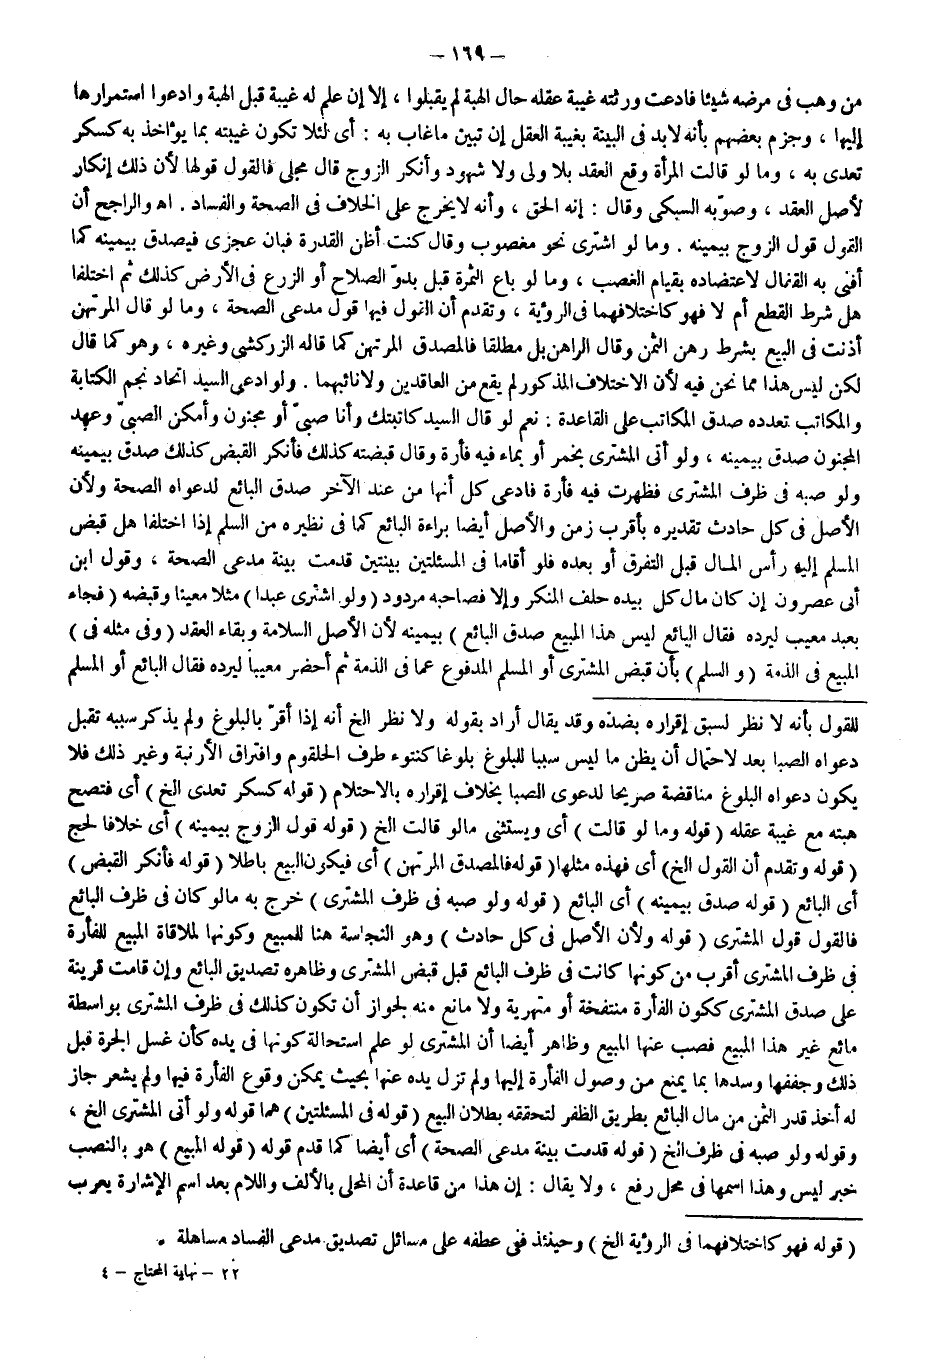 – ١٦٩ –
من وهب فى مرضه شيئا فادعت ورثته غيبة عقله حال الهبة لم يقبلوا ، إلا إن علم له غيبة قبل الهبة وادعوا استمرارها
إليها ، وجزم بعضهم بأنه لابد فى البينة بغيبة العقل إن تبين ماغاب به : أى لئلا تكون غيبته بما يؤاخذ به كسكر
تعدى به ، وما لو قالت المرأة وقع العقد بلا ولى ولا شهود وأنكر الزوج قال مجلى فالقول قولها لأن ذلك إنكار
لأصل العقد ، وصوّبه السبكى وقال : إنه الحق ، وأنه لايخرج على الخلاف فى الصحة والفساد . اه والراجح أن
القول قول الزوج بيمينه . وما لو اشترى نحو مغصوب وقال كنت أظن القدرة فبان عجزى فيصدق بيمينه كما
أفتى به القفال لاعتضاده بقيام الغصب ، وما لو باع الثمرة قبل بدوّ الصلاح أو الزرع فى الأرض كذلك ثم اختلفا
هل شرط القطع أم لا فهو كاختلافهما فى الرؤية ، وتقدم أن القول فيها قول مدعى الصحة ، وما لو قال المرتهن
أذنت فى البيع بشرط رهن الثمن وقال الراهن بل مطلقا فالمصدق المرتهن كما قاله الزركشى وغيره ، وهو كما قال
لكن ليس هذا مما نحن فيه لأن الاختلاف المذكور لم يقع من العاقدين ولا نائبهما . ولو ادعى السيد اتحاد نجم الكتابة
والمكاتب تعدده صدق المكاتب على القاعدة : نعم لو قال السيد كاتبتك وأنا صبىّ أو مجنون وأمكن الصبىّ وعهد
المجنون صدق بيمينه ، ولو أتى المشترى بخمر أو بماء فيه فأرة وقال قبضته كذلك فأنكر القبض كذلك صدق بيمينه
ولو صبه فى ظرف المشترى فظهرت فيه فأرة فادعى كل أنها من عند الآخر صدق البائع لدعواه الصحة ولأن
الأصل فى كل حادث تقديره بأقرب زمن والأصل أيضا براءة البائع كما فى نظيره من السلم إذا اختلفا هل قبض
المسلم إليه رأس المال قبل التفرق أو بعده فلو أقاما فى المسئلتين بينتين قدمت بينة مدعى الصحة ، وقول ابن
أبى عصرون إن كان مال كل بيده حلف المنكر وإلا فصاحبه مردود ( ولو اشترى عبدا ) مثلا معينا وقبضه ( فجاء
بعبد معيب ليرده فقال البائع ليس هذا المبيع صدق البائع ) بيمينه لأن الأصل السلامة وبقاء العقد ( وفى مثله فى )
المبيع فى الذمة ( و السلم ) بأن قبض المشترى أو المسلم المدفوع عما فى الذمة ثم أحضر معيبا ليرده فقال البائع أو المسلم
للقول بأنه لا نظر لسبق إقراره بضده وقد يقال أراد بقوله ولا نظر الخ أنه إذا أقرّ بالبلوغ ولم يذكر سببه تقبل
دعواه الصبا بعد لاحتمال أن يظن ما ليس سببا للبلوغ بلوغا كنتوء طرف الحلقوم وافتراق الأرنبة وغير ذلك فلا
يكون دعواه البلوغ مناقضة صريحا لدعوى الصبا بخلاف إقراره بالاحتلام ( قوله كسكر تعدى الخ ) أى فتصح
هبته مع غيبة عقله ( قوله وما لو قالت ) أى ويستثنى مالو قالت الخ ( قوله قول الزوج بيمينه ) أى خلافا لحج
( قوله وتقدم أن القول الخ ) أى فهذه مثلها ( قوله فالمصدق المرتهن ) أى فيكون البيع باطلا ( قوله فأنكر القبض )
أى البائع ( قوله صدق بيمينه ) أى البائع ( قوله ولو صبه فى ظرف المشترى ) خرج به مالو كان فى ظرف البائع
فالقول قول المشترى ( قوله ولأن الأصل فى كل حادث ) وهو النجاسة هنا للمبيع وكونها لملاقاة المبيع للفأرة
فى ظرف المشترى أقرب من كونها كانت فى ظرف البائع قبل قبض المشترى وظاهره تصديق البائع وإن قامت قرينة
على صدق المشترى ككون الفأرة منتفخة أو متهرية ولا مانع منه لجواز أن تكون كذلك فى ظرف المشترى بواسطة
مائع غير هذا المبيع فصب عنها المبيع وظاهر أيضا أن المشترى لو علم استحالة كونها فى يده كأن غسل الجرة قبل
ذلك وجففها وسدها بما يمنع من وصول الفأرة إليها ولم تزل يده عنها بحيث يمكن وقوع الفأرة فيها ولم يشعر جاز
له أخذ قدر الثمن من مال البائع بطريق الظفر لتحققه بطلان البيع ( قوله فى المسئلتين ) هما قوله ولو أتى المشترى الخ ،
وقوله ولو صبه فى ظرف الخ ( قوله قدمت بينة مدعى الصحة ) أى أيضا كما قدم قوله ( قوله المبيع ) هو بالنصب
خبر ليس وهذا اسمها فى محل رفع ، ولا يقال : إن هذا من قاعدة أن المحلى بالألف واللام بعد اسم الإشارة يعرب
( قوله فهو كاختلافهما فى الرؤية الخ ) وحينئذ ففى عطفه على مسائل تصديق مدعى الفساد مساهلة .
٢٢ – نهاية المحتاج – ٤